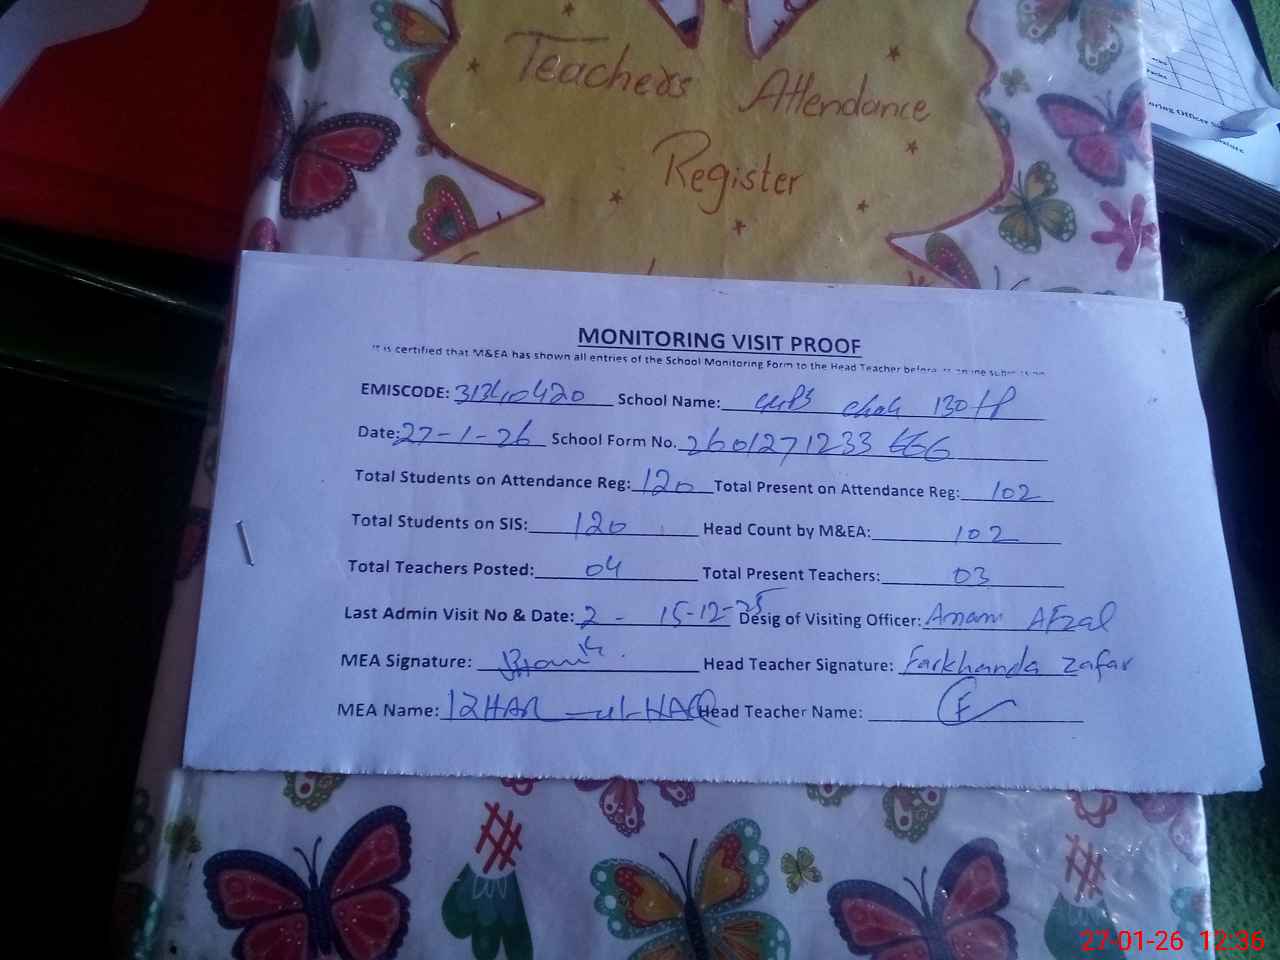 Teachers Attendance
Register
MONITORING VISIT PROOF
It is certified that M&EA has shown all entries of the School Monitoring Form to the Head Teacher before
EMISCODE: 31340420 School Name: GGPS Chak 130 1P
Date: 27-1-26 School Form No. 2601271233 666
Total Students on Attendance Reg: 120 Total Present on Attendance Reg: 102
Total Students on SIS: 120 Head Count by M&EA: 102
Total Teachers Posted: 04 Total Present Teachers: 03
Last Admin Visit No & Date: 2 - 15-12-25 Desig of Visiting Officer: Anam Afzal
MEA Signature: Head Teacher Signature: Farkhanda Zafar
MEA Name: IZHAR-ul-HAQ Head Teacher Name:
27-01-26 12:36